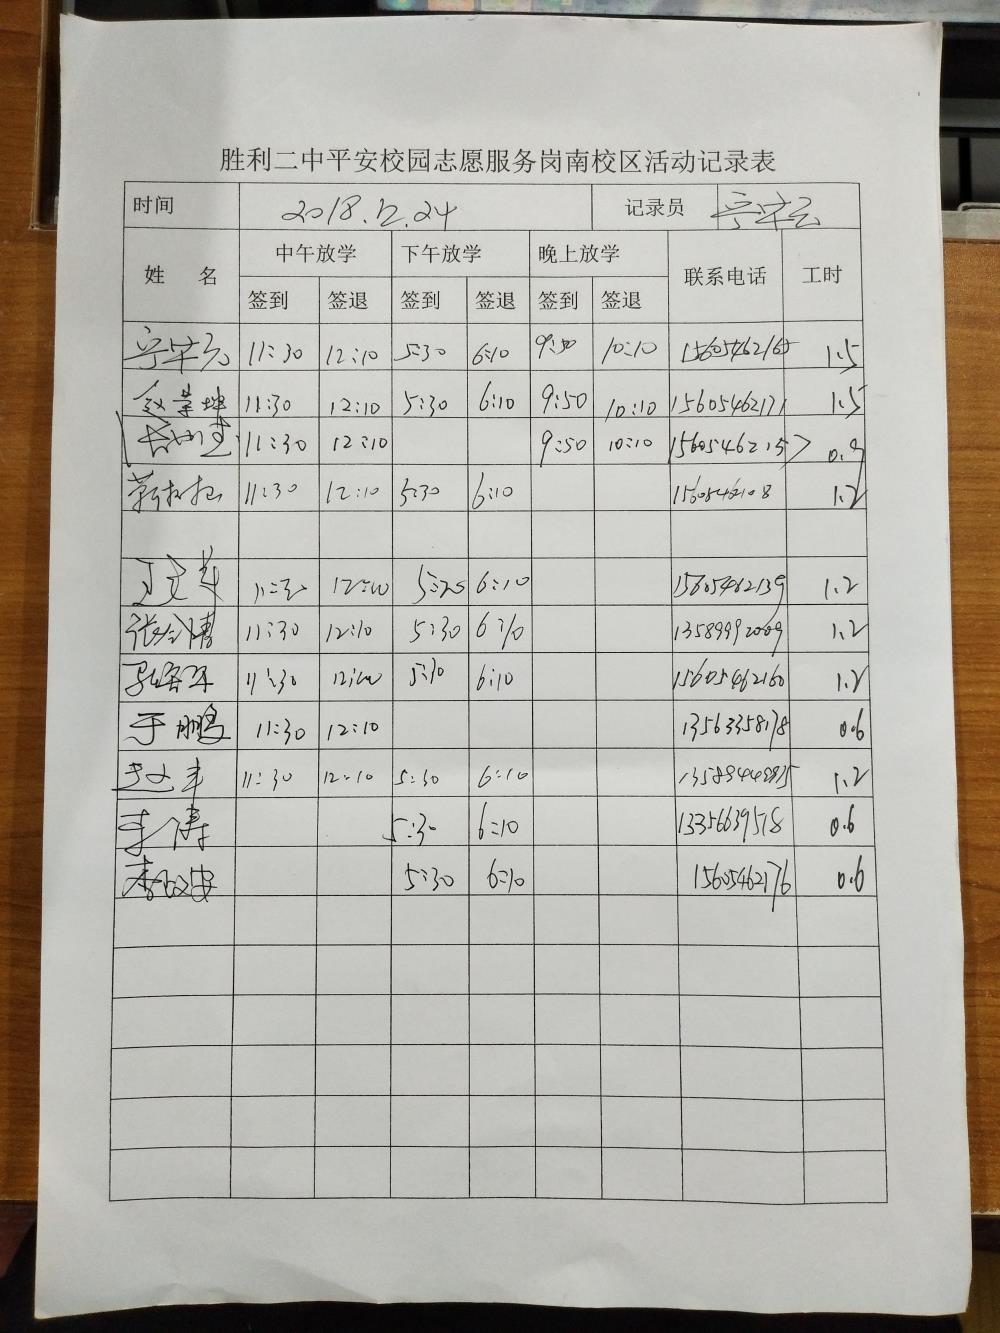 胜利二中平安校园志愿服务岗南校区活动记录表
时间 2018.12.24 记录员
姓 名 中午放学 下午放学 晚上放学 联系电话 工时
签到 签退 签到 签退 签到 签退
11:30 12:10 5:30 6:10 9:50 10:10 15605462165 1.5
11:30 12:10 5:30 6:10 9:50 10:10 15605462171 1.5
11:30 12:10 9:50 10:10 0.9
11:30 12:10 5:30 6:10 1.2
6:10 15605462139 1.2
11:30 12:10 5:30 6:10 13589992009 1.2
11:30 6:10 15605462160 1.2
于鹏 11:30 12:10 13563358178 0.6
11:30 12:10 5:30 6:10 1.2
李涛 5:30 6:10 13356639518 0.6
5:30 6:10 15605462176 0.6